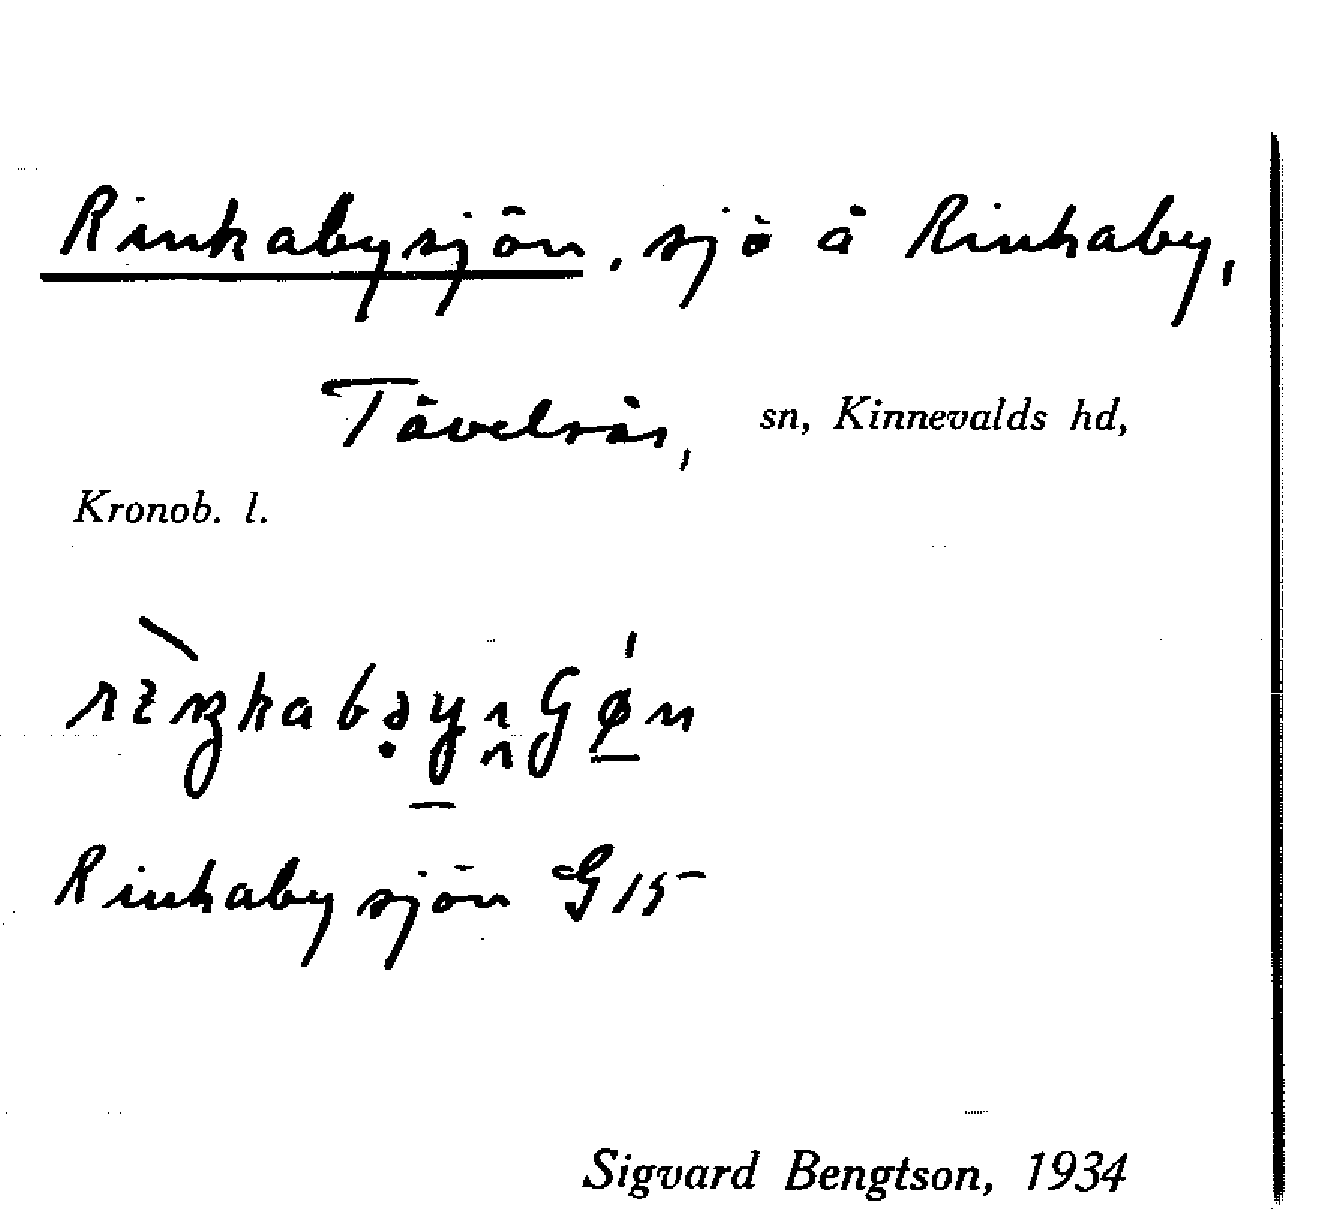 Rinkabysjön, sjö å Rinkaby,
Tävelsås, sn, Kinnevalds hd,
Kronob. l.
Rinkabysjön G15
Sigvard Bengtson, 1934